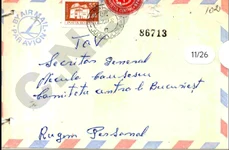 BY AIR MAIL
PAR AVION
86713
102
11/26
Tov.
Secretar General
Nicolae Ceausescu
Comitetu central Bucuresti
Rugam Personal